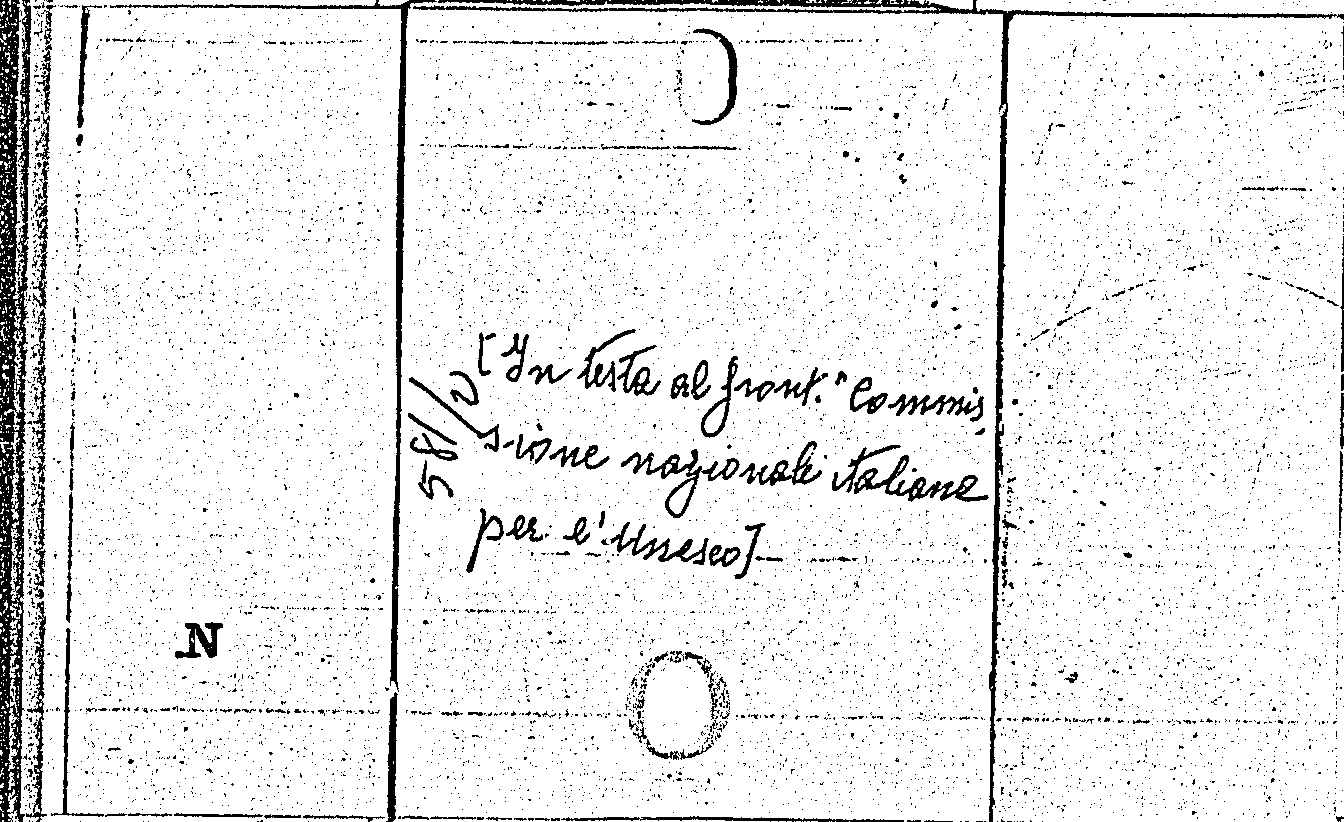 [In testa al front.: "Commis,
sione nazionale italiana
per l'Unesco]
58/
N